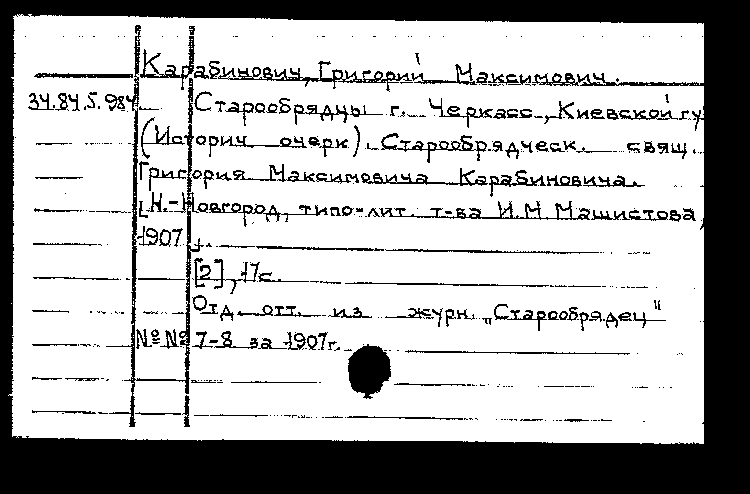 Карабинович, Григорий Максимович.
34.84.5.984 Старообрядцы г. Черкасс, Киевской гу
(Историч очерк). Старообрядческ. свящ.
Григория Максимовича Карабиновича.
[Н.-Новгород, типо-лит. т-ва И.М. Машистова,
1907].
[2], 17с.
Отд. отт. из журн. „Старообрядец"
№№ 7-8 за 1907г.